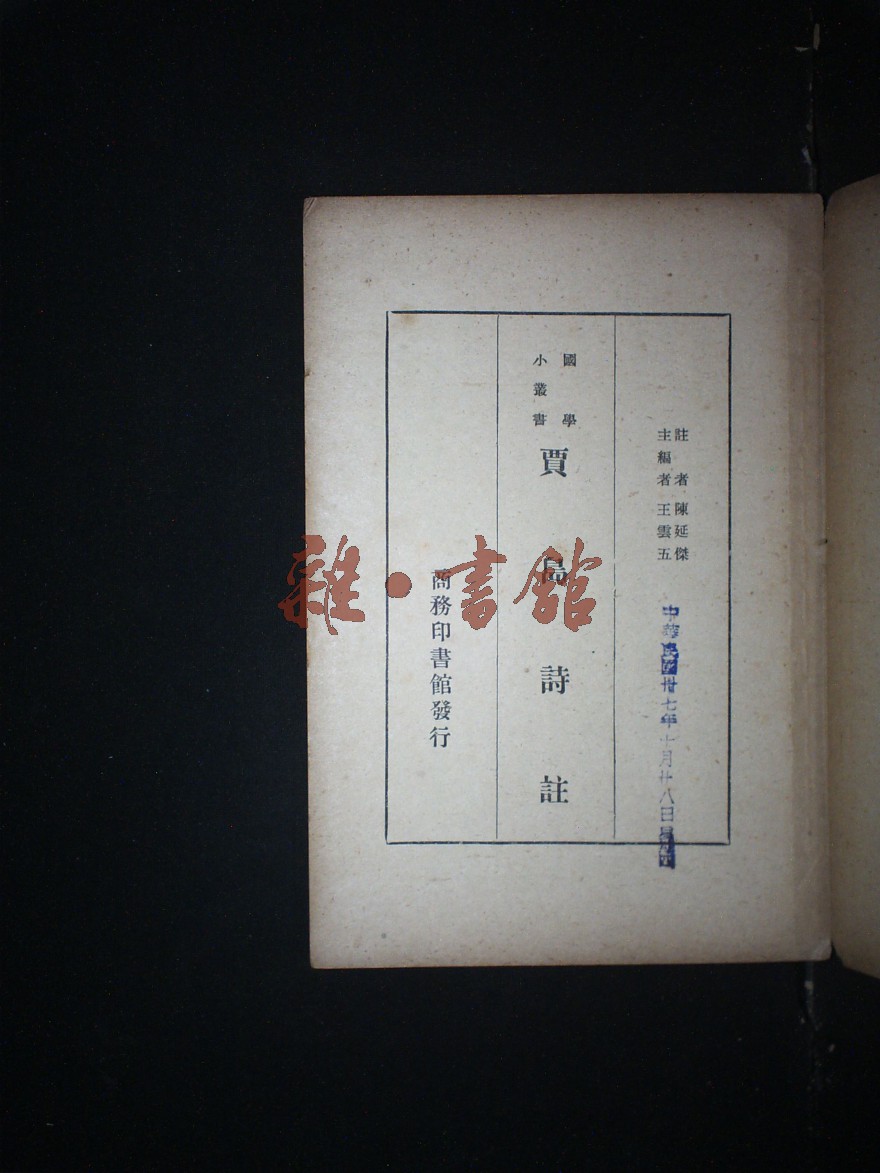 註者 陳延傑
主編者 王雲五
國學
小叢書
賈島詩註
商務印書館發行
中華民國卅七年十月廿八日
雜·書館